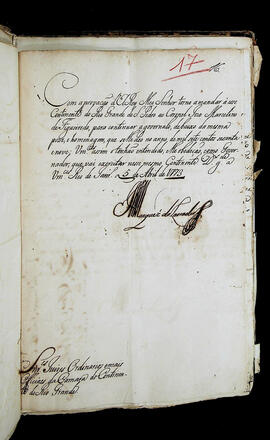 17
Com approvação d'ElRey Meu Senhor torna a mandar á esse
Continente do Rio Grande de S. Pedro ao Coronel Joze Marcelino
de Figueiredo, para continuar a governalo, debaixo da mesma
posse, e homenagem, que se lhe deo no anno de mil sete centos secenta
e nove; Vmces assim o tenhao entendido, e lhe obedeçao, como Gover-
nador, que vai a exercitar nesse mesmo Continente. Ds. gde. a
Vmces. Rio de Janro. 5 de Abril de 1773
Marquez do Lavradio
Snres. Juizes Ordinarios e mais
Officiaes da Camara do Continen-
te do Rio Grande